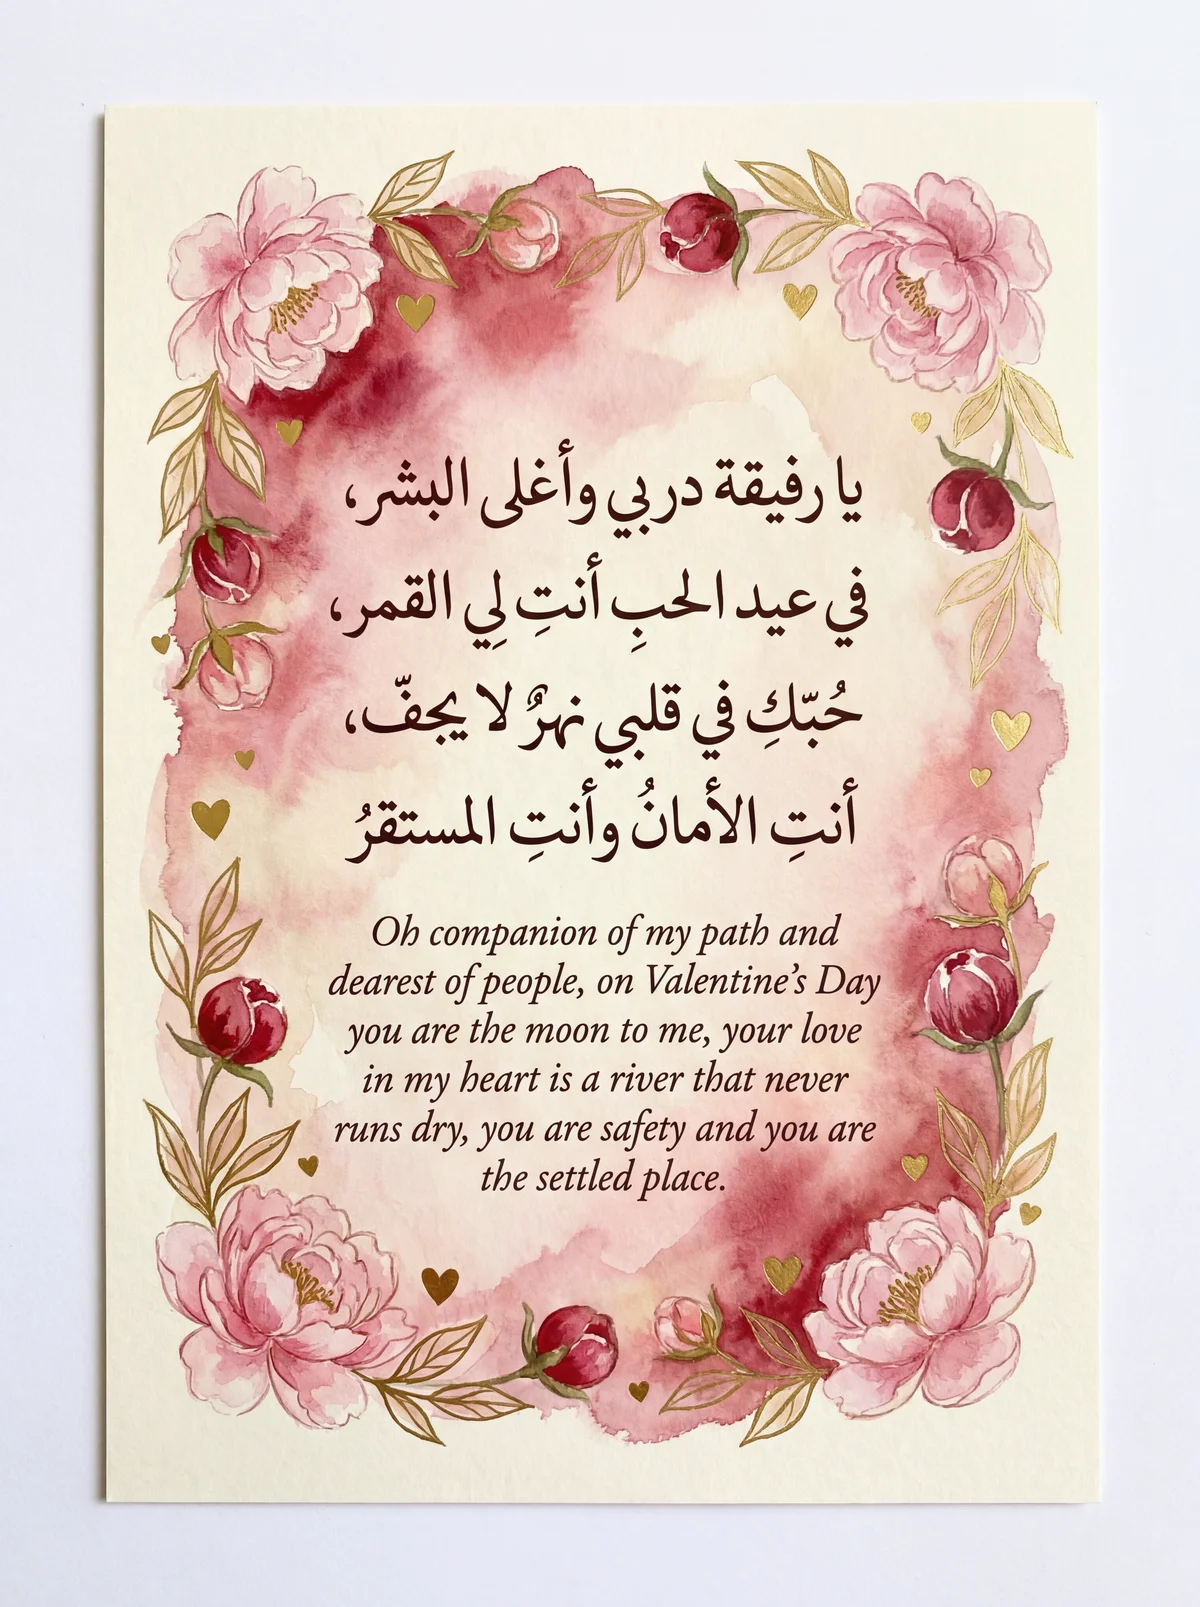 يا رفيقة دربي وأغلى البشر،
في عيد الحبِ أنتِ لِي القمر،
حُبّكِ في قلبي نهرٌ لا يجفّ،
أنتِ الأمانُ وأنتِ المستقرُ
Oh companion of my path and
dearest of people, on Valentine's Day
you are the moon to me, your love
in my heart is a river that never
runs dry, you are safety and you are
the settled place.